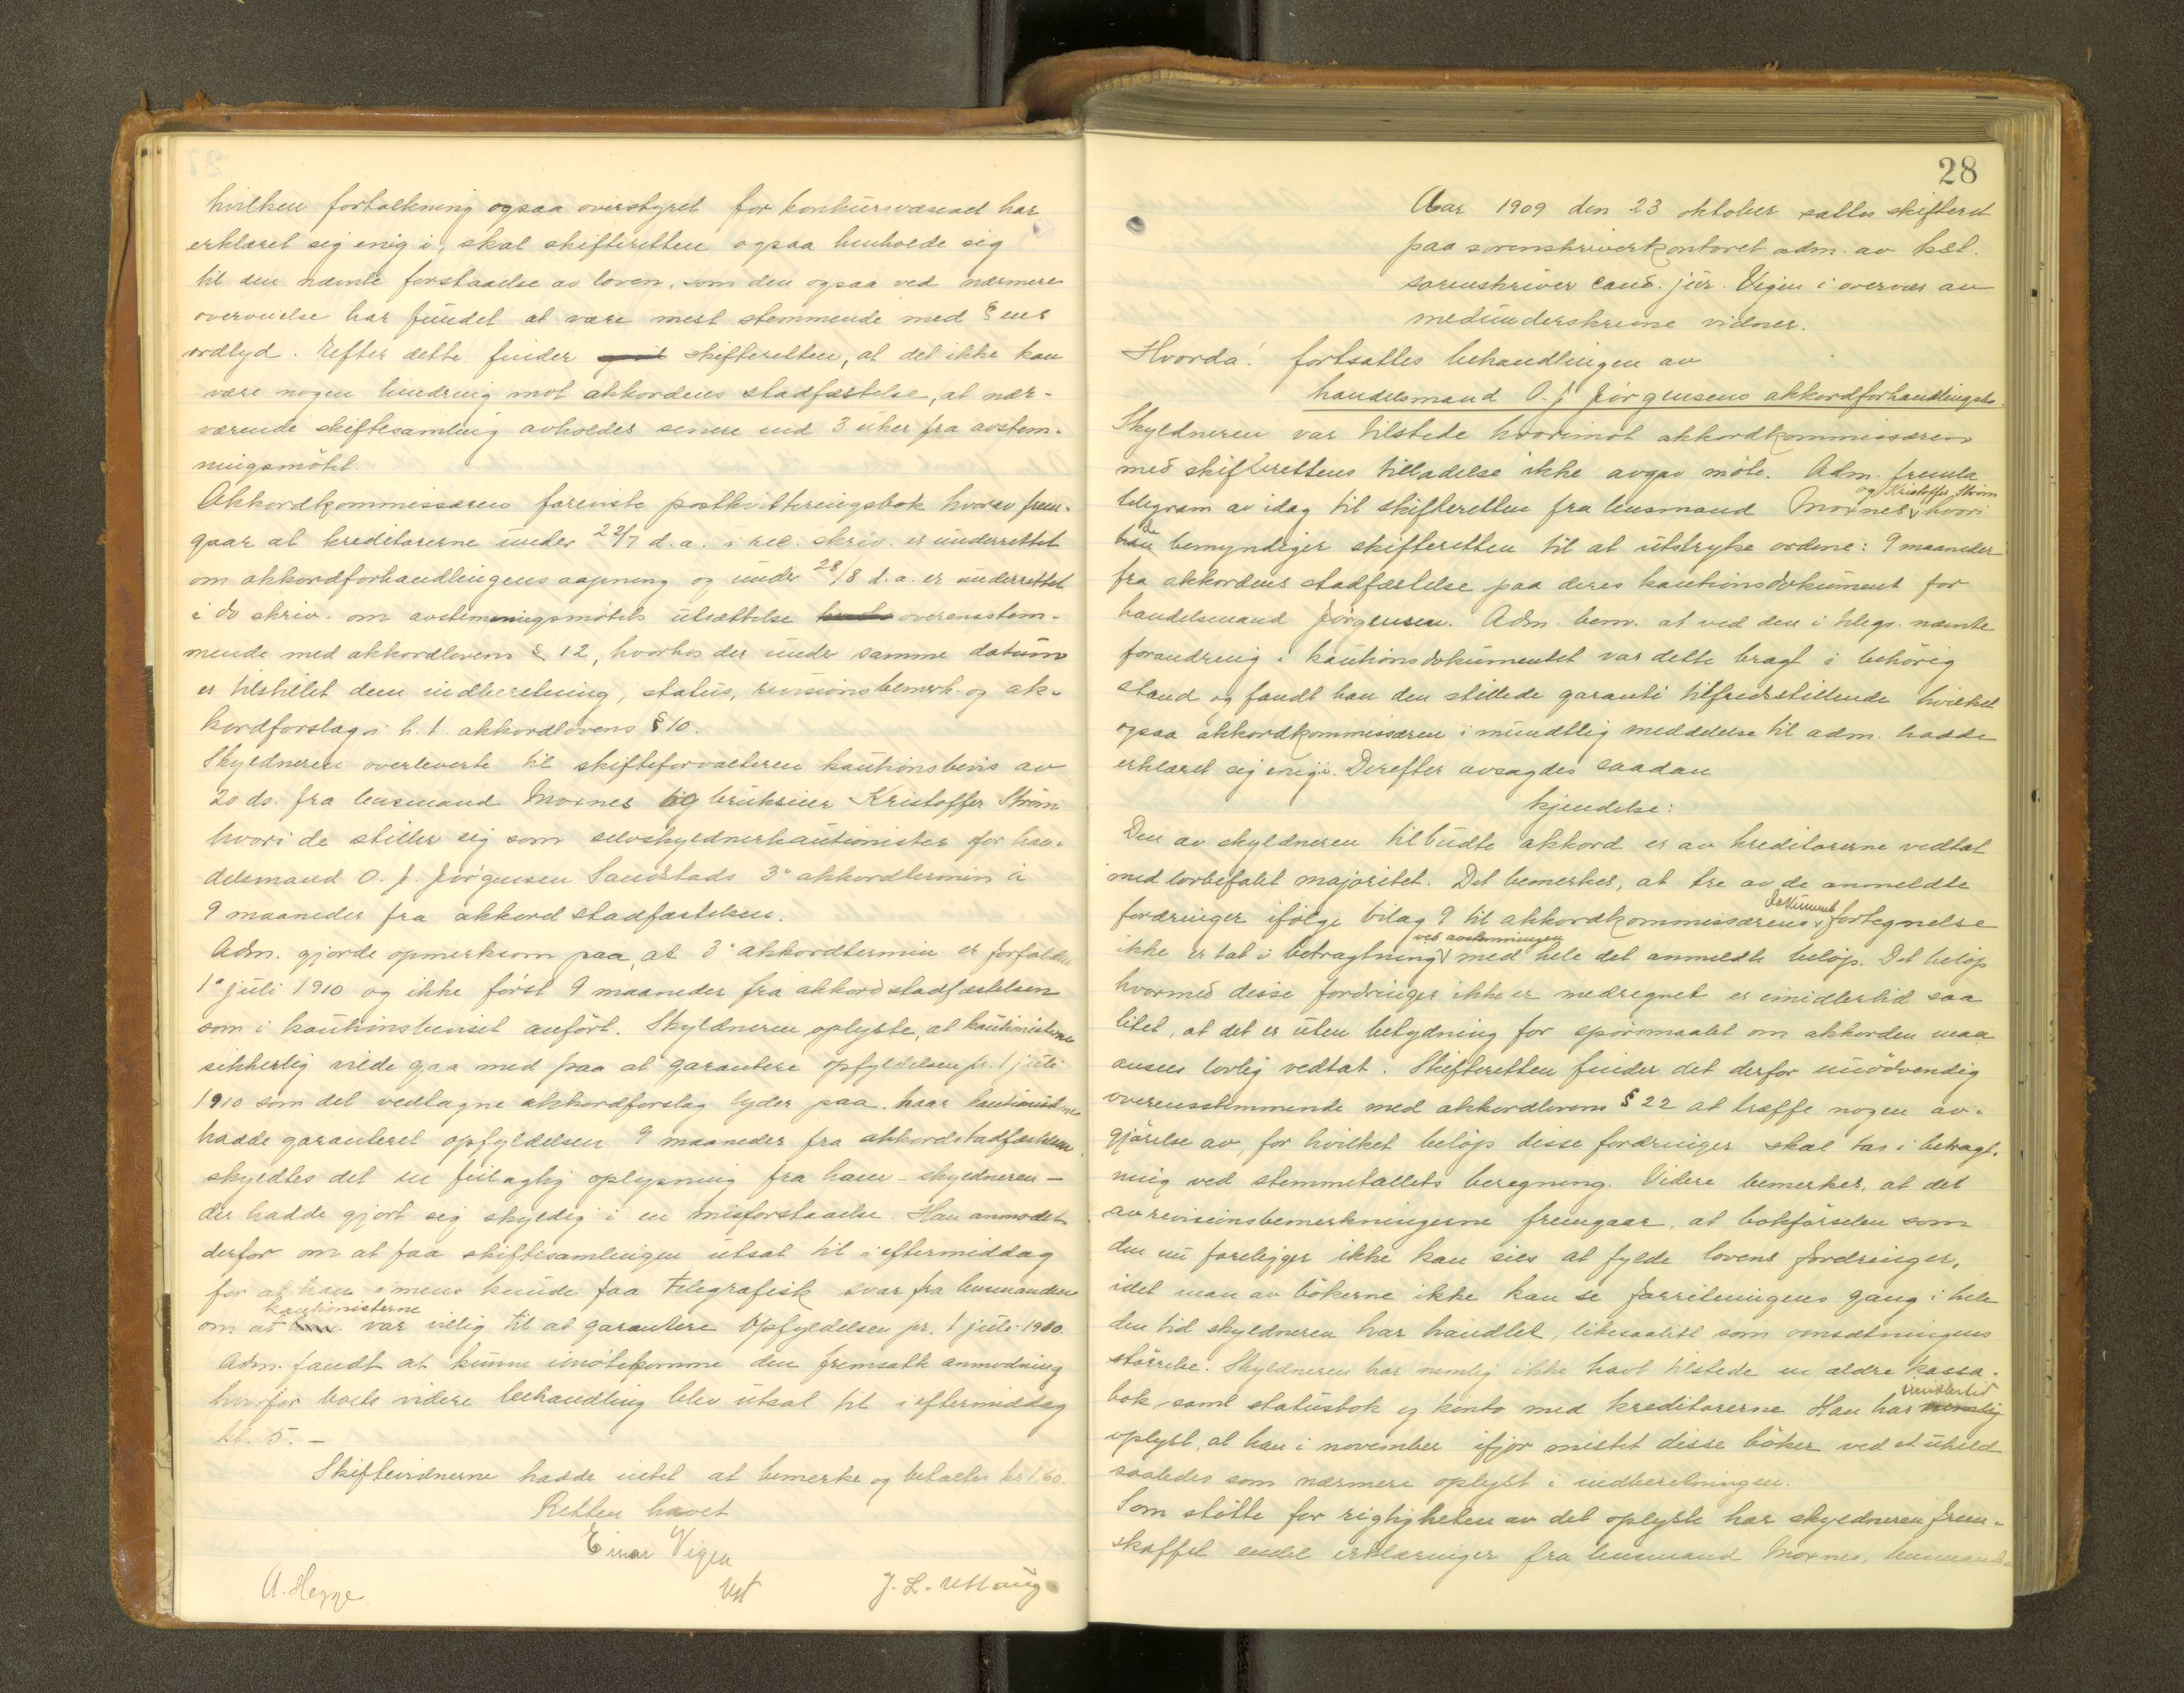 hvilken fortolkning ogsaa overstyret for konkursvæsenet har
erklæret sig enig i, skal skifteretten ogsaa henholde sig
til den nævnte forstaaelse av loven, som den ogsaa ved nærmere
overveielse har fundet at være mest stemmende med §ens
ordlyd. Efter dette finder skifteretten, at det ikke kan
være nogen hindring mot akkordens stadfæstelse, at nær-
værende skiftesamling avholdes senere end 3 uker fra avstem-
ningsmötet.
Akkordkommissæren foreviste postkvitteringsbok hvorav frem-
gaar at kreditorerne under 22/7 d.a. i rec. skriv. er underrettet
om akkordforhandlingens aapning og under 28/8 d.a. er underrettet
i do skriv. om avstemningsmötets utsættelse overensstem-
mende med akkordlovens § 12, hvorhos der under samme datum
er tilstillet dem indberetning, status, revisionsbemerk. og ak-
kordforslag i h. t. akkordlovens § 10.
Skyldneren overleverte til skifteforvalteren kautionsbevis av
20 ds. fra lensmand Moxnes og brukseier Kristoffer Ström
hvori de stiller sig som selvskyldnerkautionister for han-
delsmand O. J. Jörgensen Sandstads 3° akkordtermin à
9 maaneder fra akkordstadfæstelsen.
Adm. gjorde opmerksom paa, at 3° akkordtermin er forfalden
1° juli 1910 og ikke först 9 maaneder fra akkordstadfæstelsen
som i kautionsbeviset anfört. Skyldneren oplyste, at kautionisterne
sikkerlig vilde gaa med paa at garantere opfyldelsen pr. 1 juli
1910 som det vedtagne akkordforslag lyder paa. Naar kautionisterne
hadde garanteret opfyldelsen 9 maaneder fra akkordstadfæstelsen
skyldtes det en feilagtig oplysning fra ham – skyldneren –
der hadde gjort sig skyldig i en misforstaaelse. Han anmodet
derfor om at faa skiftesamlingen utsat til i eftermiddag
for at han imens kunde faa telegrafisk svar fra lensmanden
om at kautionisterne var villig til at garantere opfyldelsen pr. 1 juli 1910.
Adm. fandt at kunne imötekomme den fremsatte anmodning
hvorfor boets videre behandling blev utsat til i eftermiddag
kl. 5. –
Skiftevidnerne hadde intet at bemerke og betaltes kr 1.60.
Retten hævet
Einar Vigen
A. Hegge
Vst
J. L. Uthaug
28
Aar 1909 den 23 oktober sattes skifteret
paa sorenskriverkontoret adm. av kst.
sorenskriver cand. jur. Vigen i overvær av
medunderskrevne vidner.
Hvorda: fortsattes behandlingen av
handelsmand O. J. Jörgensens akkordforhandlingsbo.
Skyldneren var tilstede hvorimot akkordkommissæren
med skifterettens tilladelse ikke avgav möte. Adm. fremla
telegram av idag til skifteretten fra lensmand Moxnes og Kristoffer Ström hvori
de bemyndiger skifteretten til at utstryke ordene: 9 maaneder
fra akkordens stadfæstelse paa deres kautionsdokument for
handelsmand Jörgensen. Adm. bem. at ved den i telegr. nævnte
forandring i kautionsdokumentet var dette bragt i behörig
stand og fandt han den stillede garanti tilfredsstillende hvilket
ogsaa akkordkommissæren i mundtlig meddelelse til adm. hadde
erklæret sig enig i. Derefter avsagdes saadan
kjendelse:
Den av skyldneren tilbudte akkord er av kreditorerne vedtat
med lovbefalet majoritet. Det bemerkes, at tre av de anmeldte
fordringer ifölge bilag 9 til akkordkommissærens fortegnelse
ikke er tat i betragtning ved avstemningen med hele det anmeldte belöp. Det belöp
hvormed disse fordringer ikke er medregnet er imidlertid saa
litet, at det er uten betydning for spörsmaalet om akkorden maa
ansees lovlig vedtat. Skifteretten finder det derfor unödvendig
overensstemmende med akkordlovens § 22 at træffe nogen av-
gjörelse av, for hvilket belöp disse fordringer skal tas i betragt-
ning ved stemmetallets beregning. Videre bemerkes, at det
av revisionsbemerkningerne fremgaar, at bokförselen som
den nu foreligger ikke kan sies at fylde lovens fordringer,
idet man av bökerne ikke kan se forretningens gang i hele
den tid skyldneren har handlet, likesaalitt som omsætningens
störrelse. Skyldneren har nemlig ikke havt tilstede en ældre kassa-
bok samt statusbok og konto med kreditorerne. Han har imidlertid
oplyst, at han i november ifjor mistet disse böker ved et uheld
saaledes som nærmere oplyst i indberetningen.
Som stötte for rigtigheten av det oplyste har skyldneren frem-
skaffet endel erklæringer fra lensmand Moxnes, lensmands-